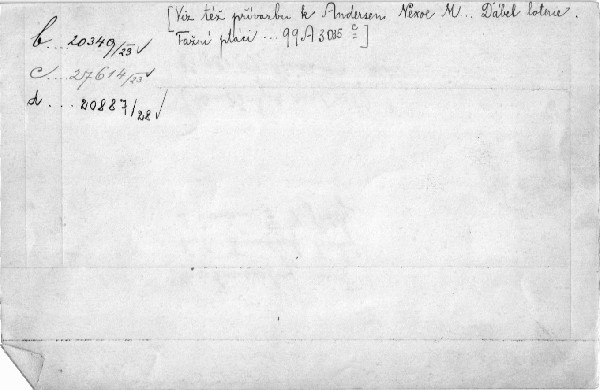 [Viz též přívazbu k Andersen Nexoe M.. Ďábel loterie.
Tažní ptáci ... 99 A 3035 c]
b... 20349/23 √
c... 27614/23 √
d.... 20887/28 √